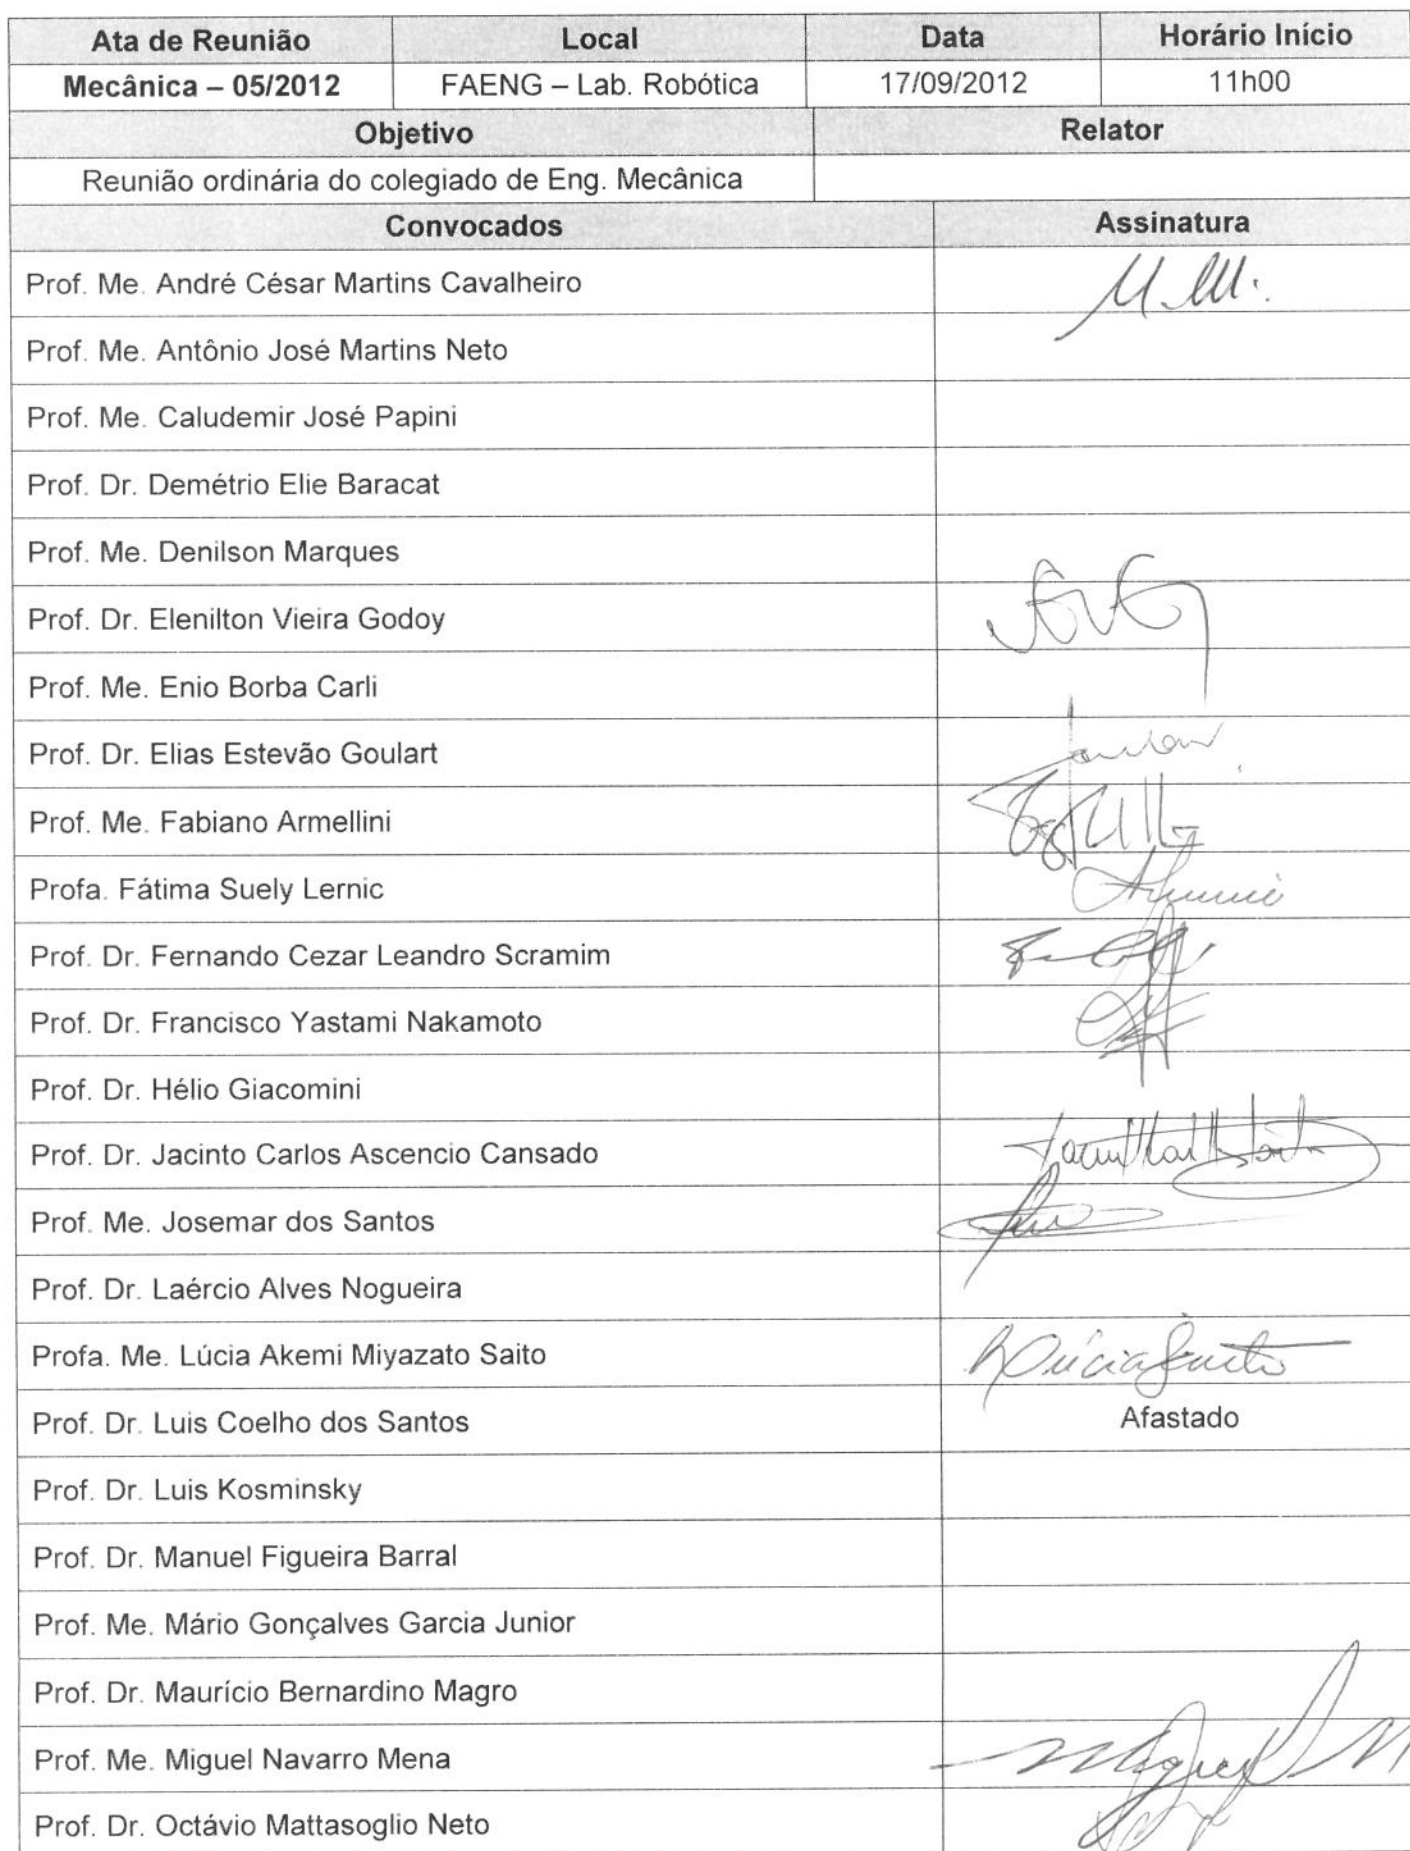 Ata de Reunião Local Data Horário Início
Mecânica – 05/2012 FAENG – Lab. Robótica 17/09/2012 11h00
Objetivo Relator
Reunião ordinária do colegiado de Eng. Mecânica
Convocados Assinatura
Prof. Me. André César Martins Cavalheiro
Prof. Me. Antônio José Martins Neto
Prof. Me. Caludemir José Papini
Prof. Dr. Demétrio Elie Baracat
Prof. Me. Denilson Marques
Prof. Dr. Elenilton Vieira Godoy
Prof. Me. Enio Borba Carli
Prof. Dr. Elias Estevão Goulart
Prof. Me. Fabiano Armellini
Profa. Fátima Suely Lernic
Prof. Dr. Fernando Cezar Leandro Scramim
Prof. Dr. Francisco Yastami Nakamoto
Prof. Dr. Hélio Giacomini
Prof. Dr. Jacinto Carlos Ascencio Cansado
Prof. Me. Josemar dos Santos
Prof. Dr. Laércio Alves Nogueira
Profa. Me. Lúcia Akemi Miyazato Saito
Prof. Dr. Luis Coelho dos Santos Afastado
Prof. Dr. Luis Kosminsky
Prof. Dr. Manuel Figueira Barral
Prof. Me. Mário Gonçalves Garcia Junior
Prof. Dr. Maurício Bernardino Magro
Prof. Me. Miguel Navarro Mena
Prof. Dr. Octávio Mattasoglio Neto